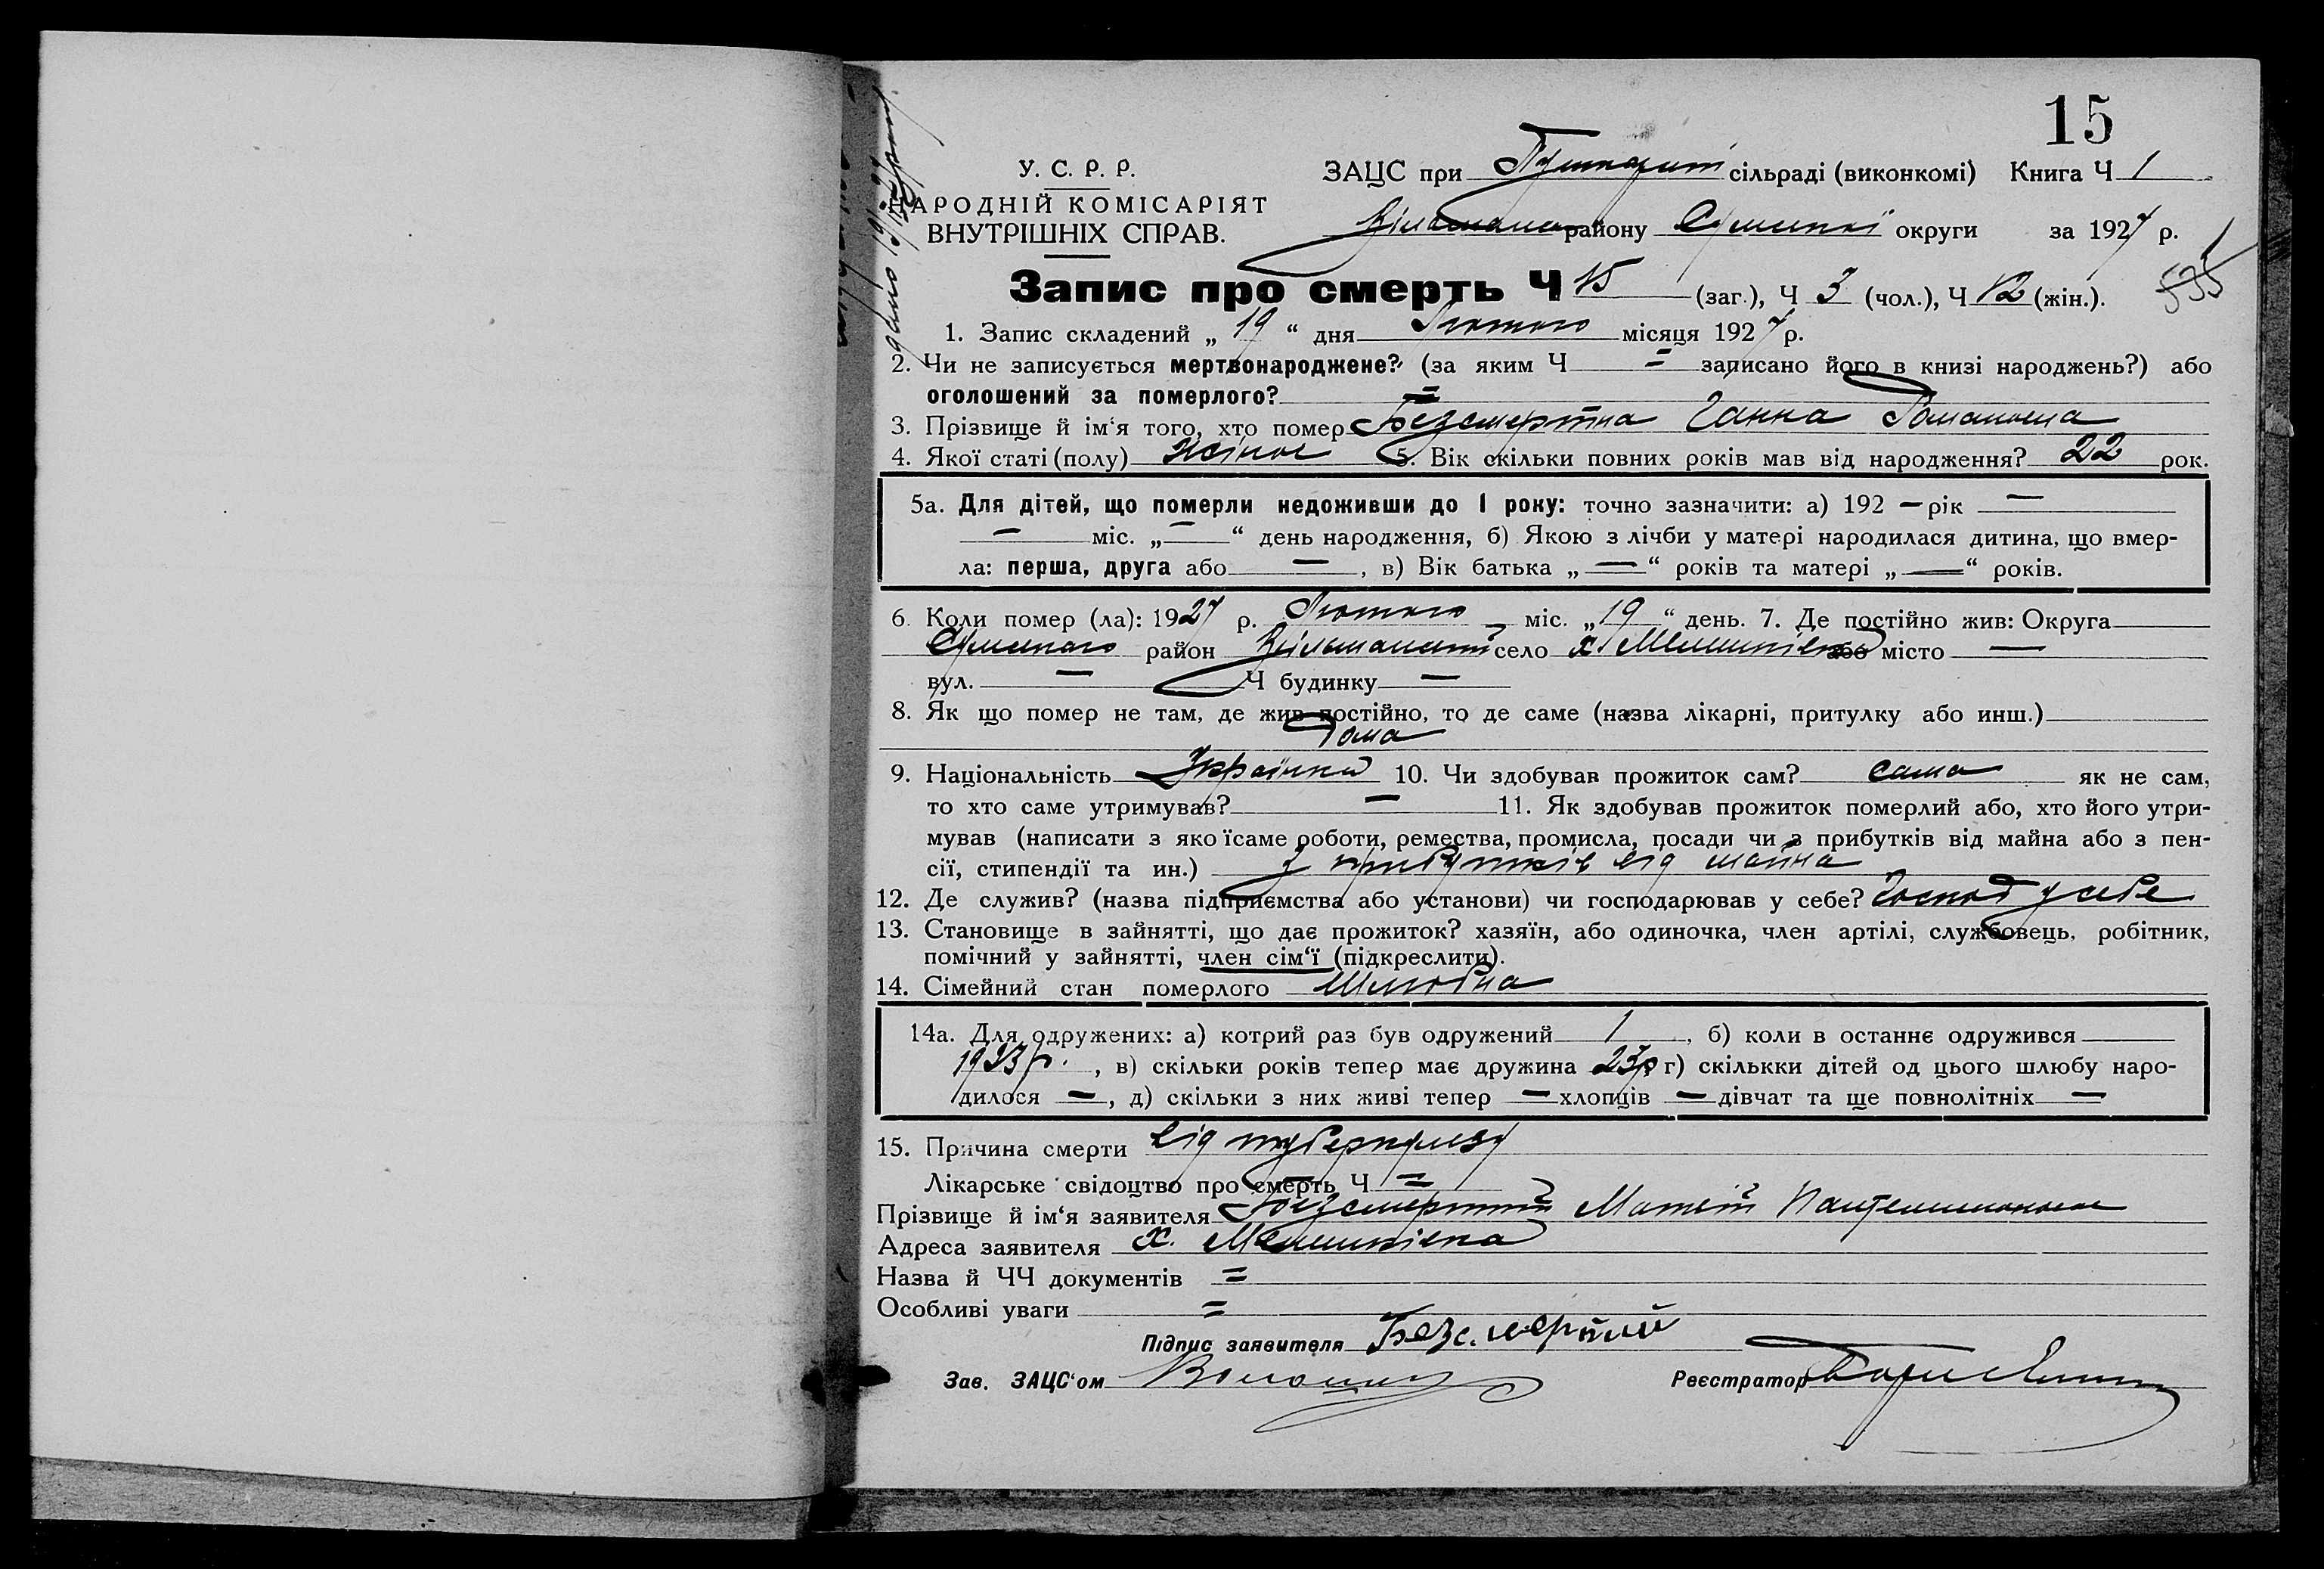 15
У. С. Р. Р.
НАРОДНІЙ КОМІСАРІЯТ
ВНУТРІШНІХ СПРАВ.
ЗАЦС при сільраді (виконкомі) Книга Ч 1
району Сумської округи за 1927 р.
535
Запис про смерть Ч 15 (заг.), Ч 3 (чол.), Ч 12 (жін.).
1. Запис складений „ 19 “ дня Лютого місяця 1927 р.
2. Чи не записується мертвонароджене? (за яким Ч = записано його в книзі народжень?) або
оголошений за померлого? =
3. Прізвище й ім‘я того, хто помер Безсмертна Ганна Романовна
4. Якої статі (полу) жіноч 5. Вік скільки повних років мав від народження? 22 рок.
5а. Для дітей, що померли недоживши до 1 року: точно зазначити: а) 192 — рік —
— міс. „ — “ день народження, б) Якою з лічби у матері народилася дитина, що вмер-
ла: перша, друга або — , в) Вік батька „ — “ років та матері „ — “ років.
6. Коли помер (ла): 1927 р. Лютого міс. „ 19 “ день. 7. Де постійно жив: Округа
Сумського район село х. або місто —
вул. — Ч будинку —
8. Як що помер не там, де жив постійно, то де саме (назва лікарні, притулку або инш.)
Дома
9. Національність Українка 10. Чи здобував прожиток сам? сама як не сам,
то хто саме утримував? — 11. Як здобував прожиток померлий або, хто його утри-
мував (написати з якоїсаме роботи, ремества, промисла, посади чи з прибутків від майна або з пен-
сії, стипендії та ин.) З прибутків від майна
12. Де служив? (назва підприємства або установи) чи господарював у себе? Господ у себе
13. Становище в зайнятті, що дає прожиток? хазяїн, або одиночка, член артілі, службовець, робітник,
помічний у зайнятті, член сім‘ї (підкреслити).
14. Сімейний стан померлого Шлюбна
14а. Для одружених: а) котрий раз був одружений 1 , б) коли в останнє одружився
1923 р. , в) скільки років тепер має дружина 23 р г) скількки дітей од цього шлюбу наро-
дилося — , д) скільки з них живі тепер — хлопців — дівчат та ще повнолітніх —
15. Причина смерти Від туберкульозу
Лікарське свідоцтво про смерть Ч =
Прізвище й ім‘я заявителя Безсмертний Матвій
Адреса заявителя х.
Назва й ЧЧ документів =
Особливі уваги =
Підпис заявителя Безсмертний
Зав. ЗАЦС‘ом
Реєстратор